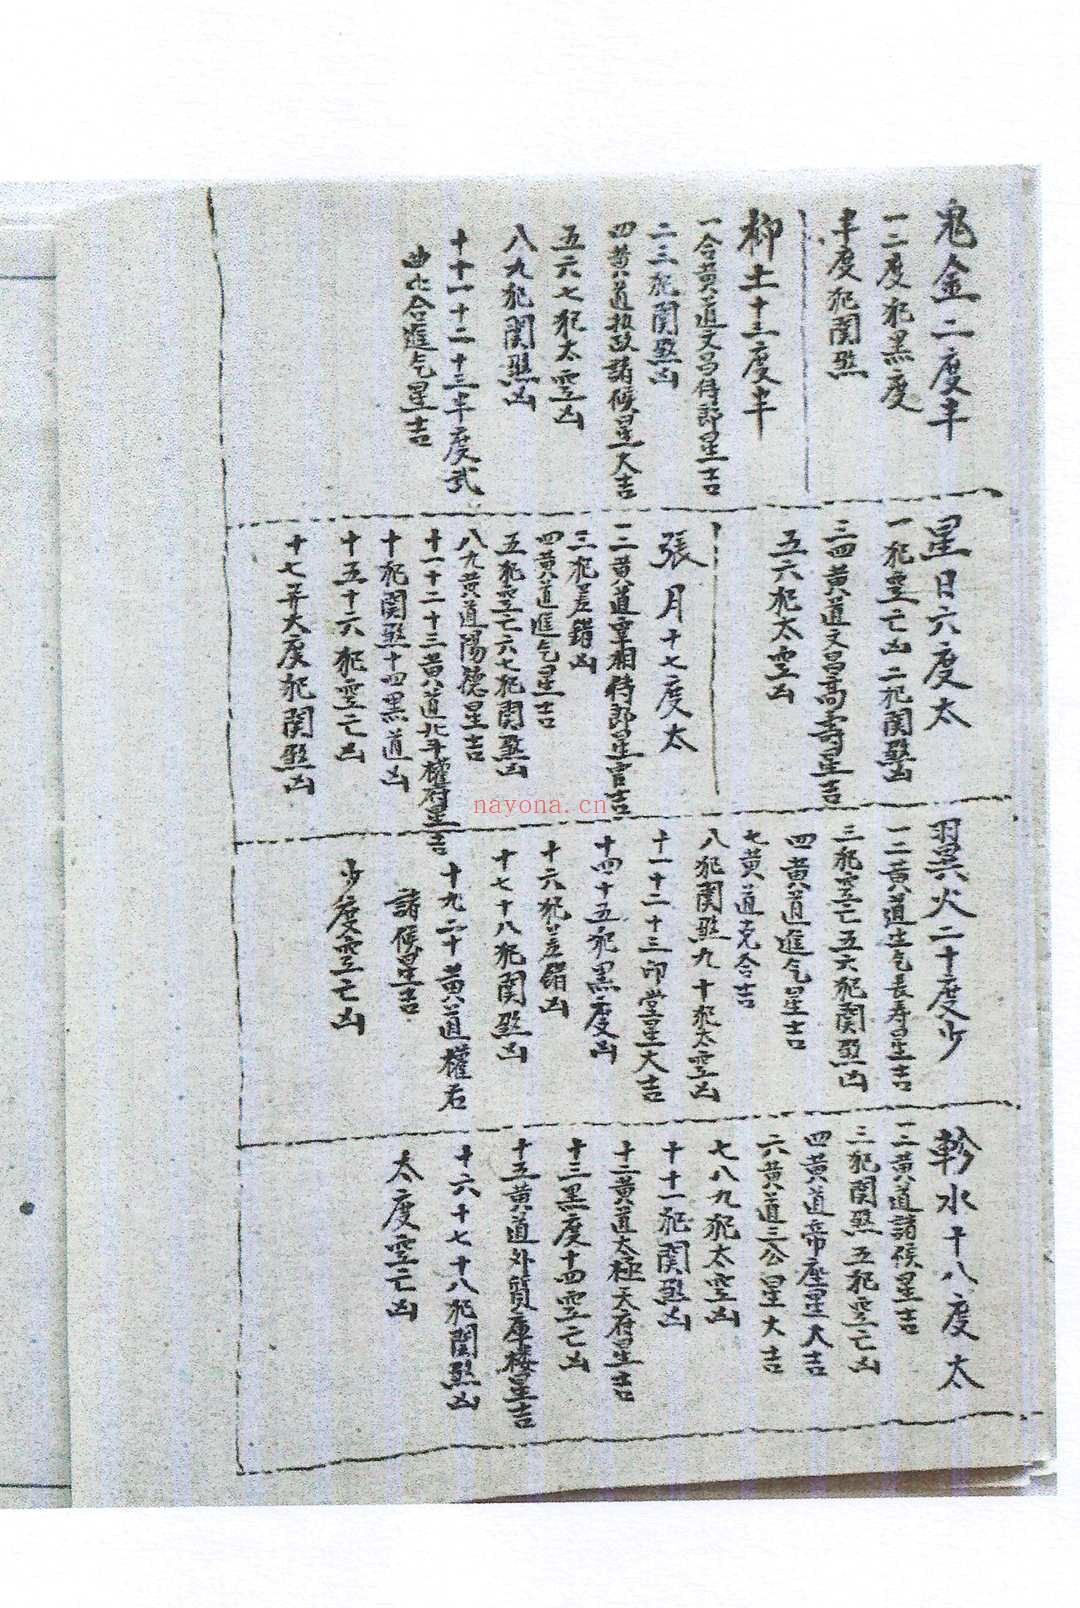 鬼金二度半
一二度犯黑度
半度犯関煞
柳土十三度半
一合黄道文昌侍郎星吉
二三犯関煞凶
四黄道执政諸候星大吉
五六七犯太空凶
八九犯関煞凶
十十一十二十三半度武
曲比合進气星吉
星日六度太
一犯空亡凶二犯関煞凶
三四黄道文昌高壽星吉
五六犯太空凶
張月十七度太
一二黄道宰相侍郎星官吉
三犯差錯凶
四黄道進气星吉
五犯空亡六七犯関煞凶
八九黄道陽德星吉
十一十二十三黄道北斗權府星吉
十犯関煞十四黑道凶
十五十六犯空亡凶
十七并太度犯関煞凶
翼火二十度少
一二黄道生气長寿星吉
三犯空亡五六犯関煞凶
四黄道進气星吉
七黄道克合吉
八犯関煞九十犯太空凶
十一十二十三印堂星大吉
十四十五犯黑度凶
十六犯差錯凶
十七十八犯関煞凶
十九二十黄道權右
諸候星吉
少度空亡凶
軫水十八度太
一二黄道諸候星吉
三犯関煞五犯空亡凶
四黄道帝座星大吉
六黄道三公星大吉
七八九犯太空凶
十十一犯関煞凶
十二黄道太極天府星吉
十三黑度十四空亡凶
十五黄道外質庫楼星吉
十六十七十八犯関煞凶
太度空亡凶
nayona.cn